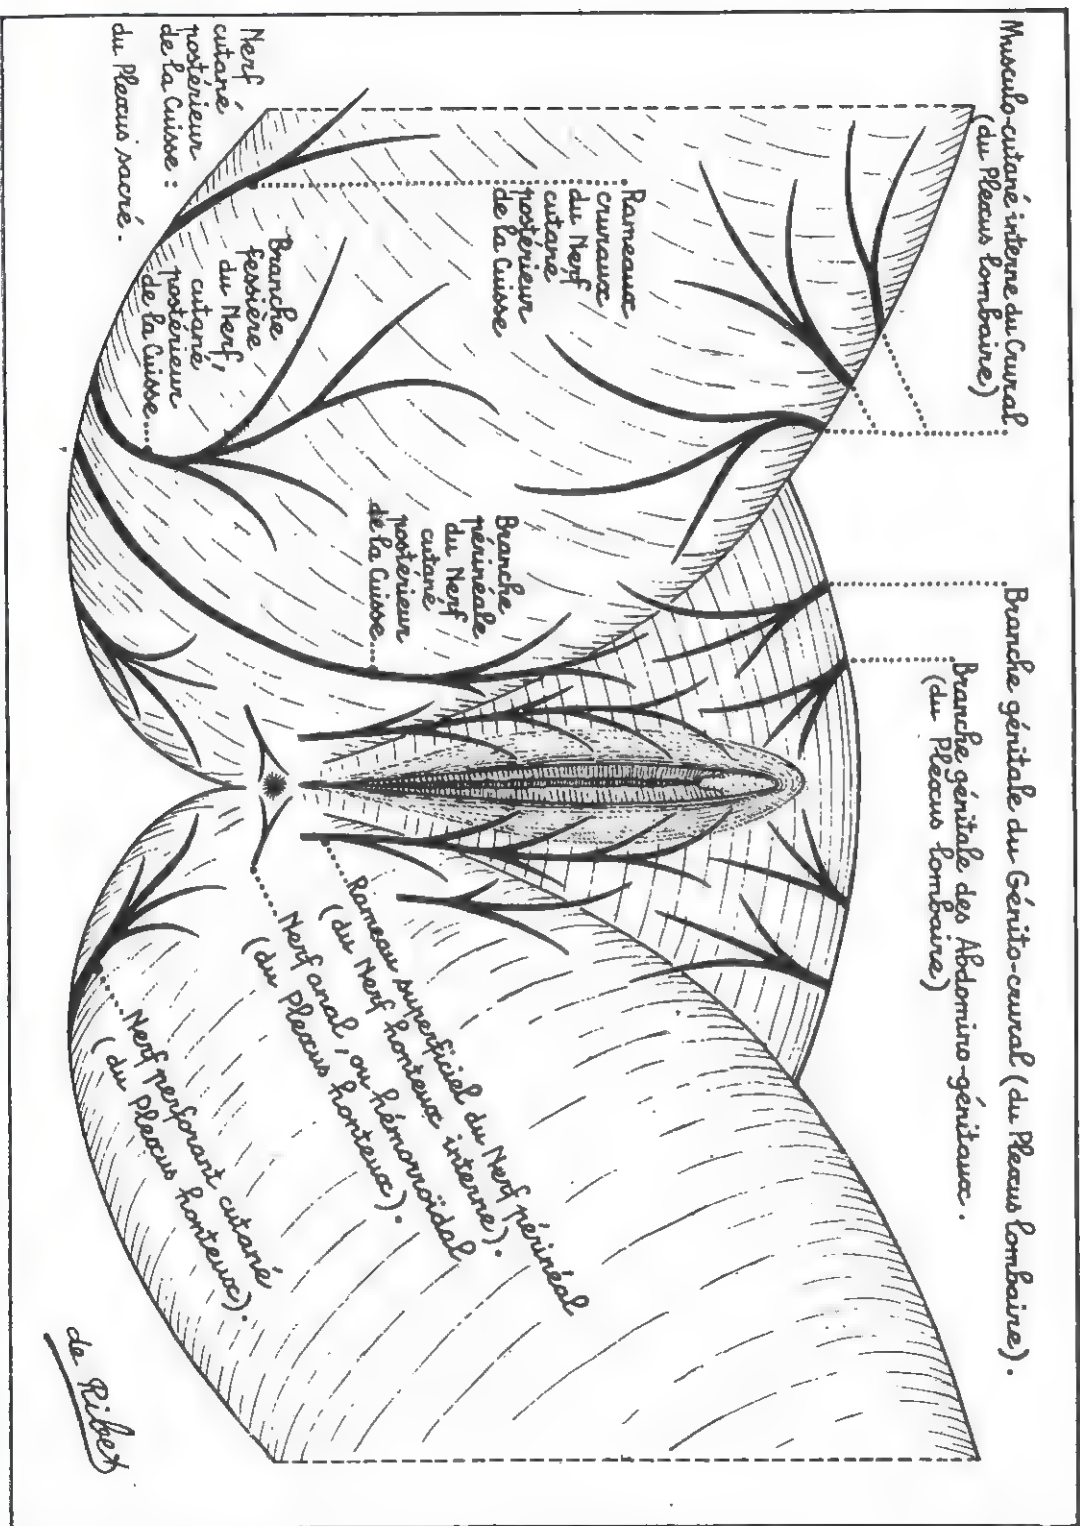 Musculo-cutané interne du Crural
(du Plexus lombaire)
Branche génitale du Génito-crural (du Plexus lombaire).
Branche génitale des Abdomino-génitaux.
(du Plexus lombaire)
Rameaux
cruraux
du Nerf
cutané
postérieur
de la Cuisse
Branche
périnéale
du Nerf
cutané
postérieur
de la Cuisse
Branche
fessière
du Nerf,
cutané
postérieur
de la Cuisse
Nerf
cutané
postérieur
de la Cuisse :
du Plexus sacré.
Rameau superficiel du Nerf périnéal
(du Nerf honteux interne).
Nerf anal, ou hémorroïdal
(du Plexus honteux).
Nerf perforant cutané
(du Plexus honteux).
de Ribet